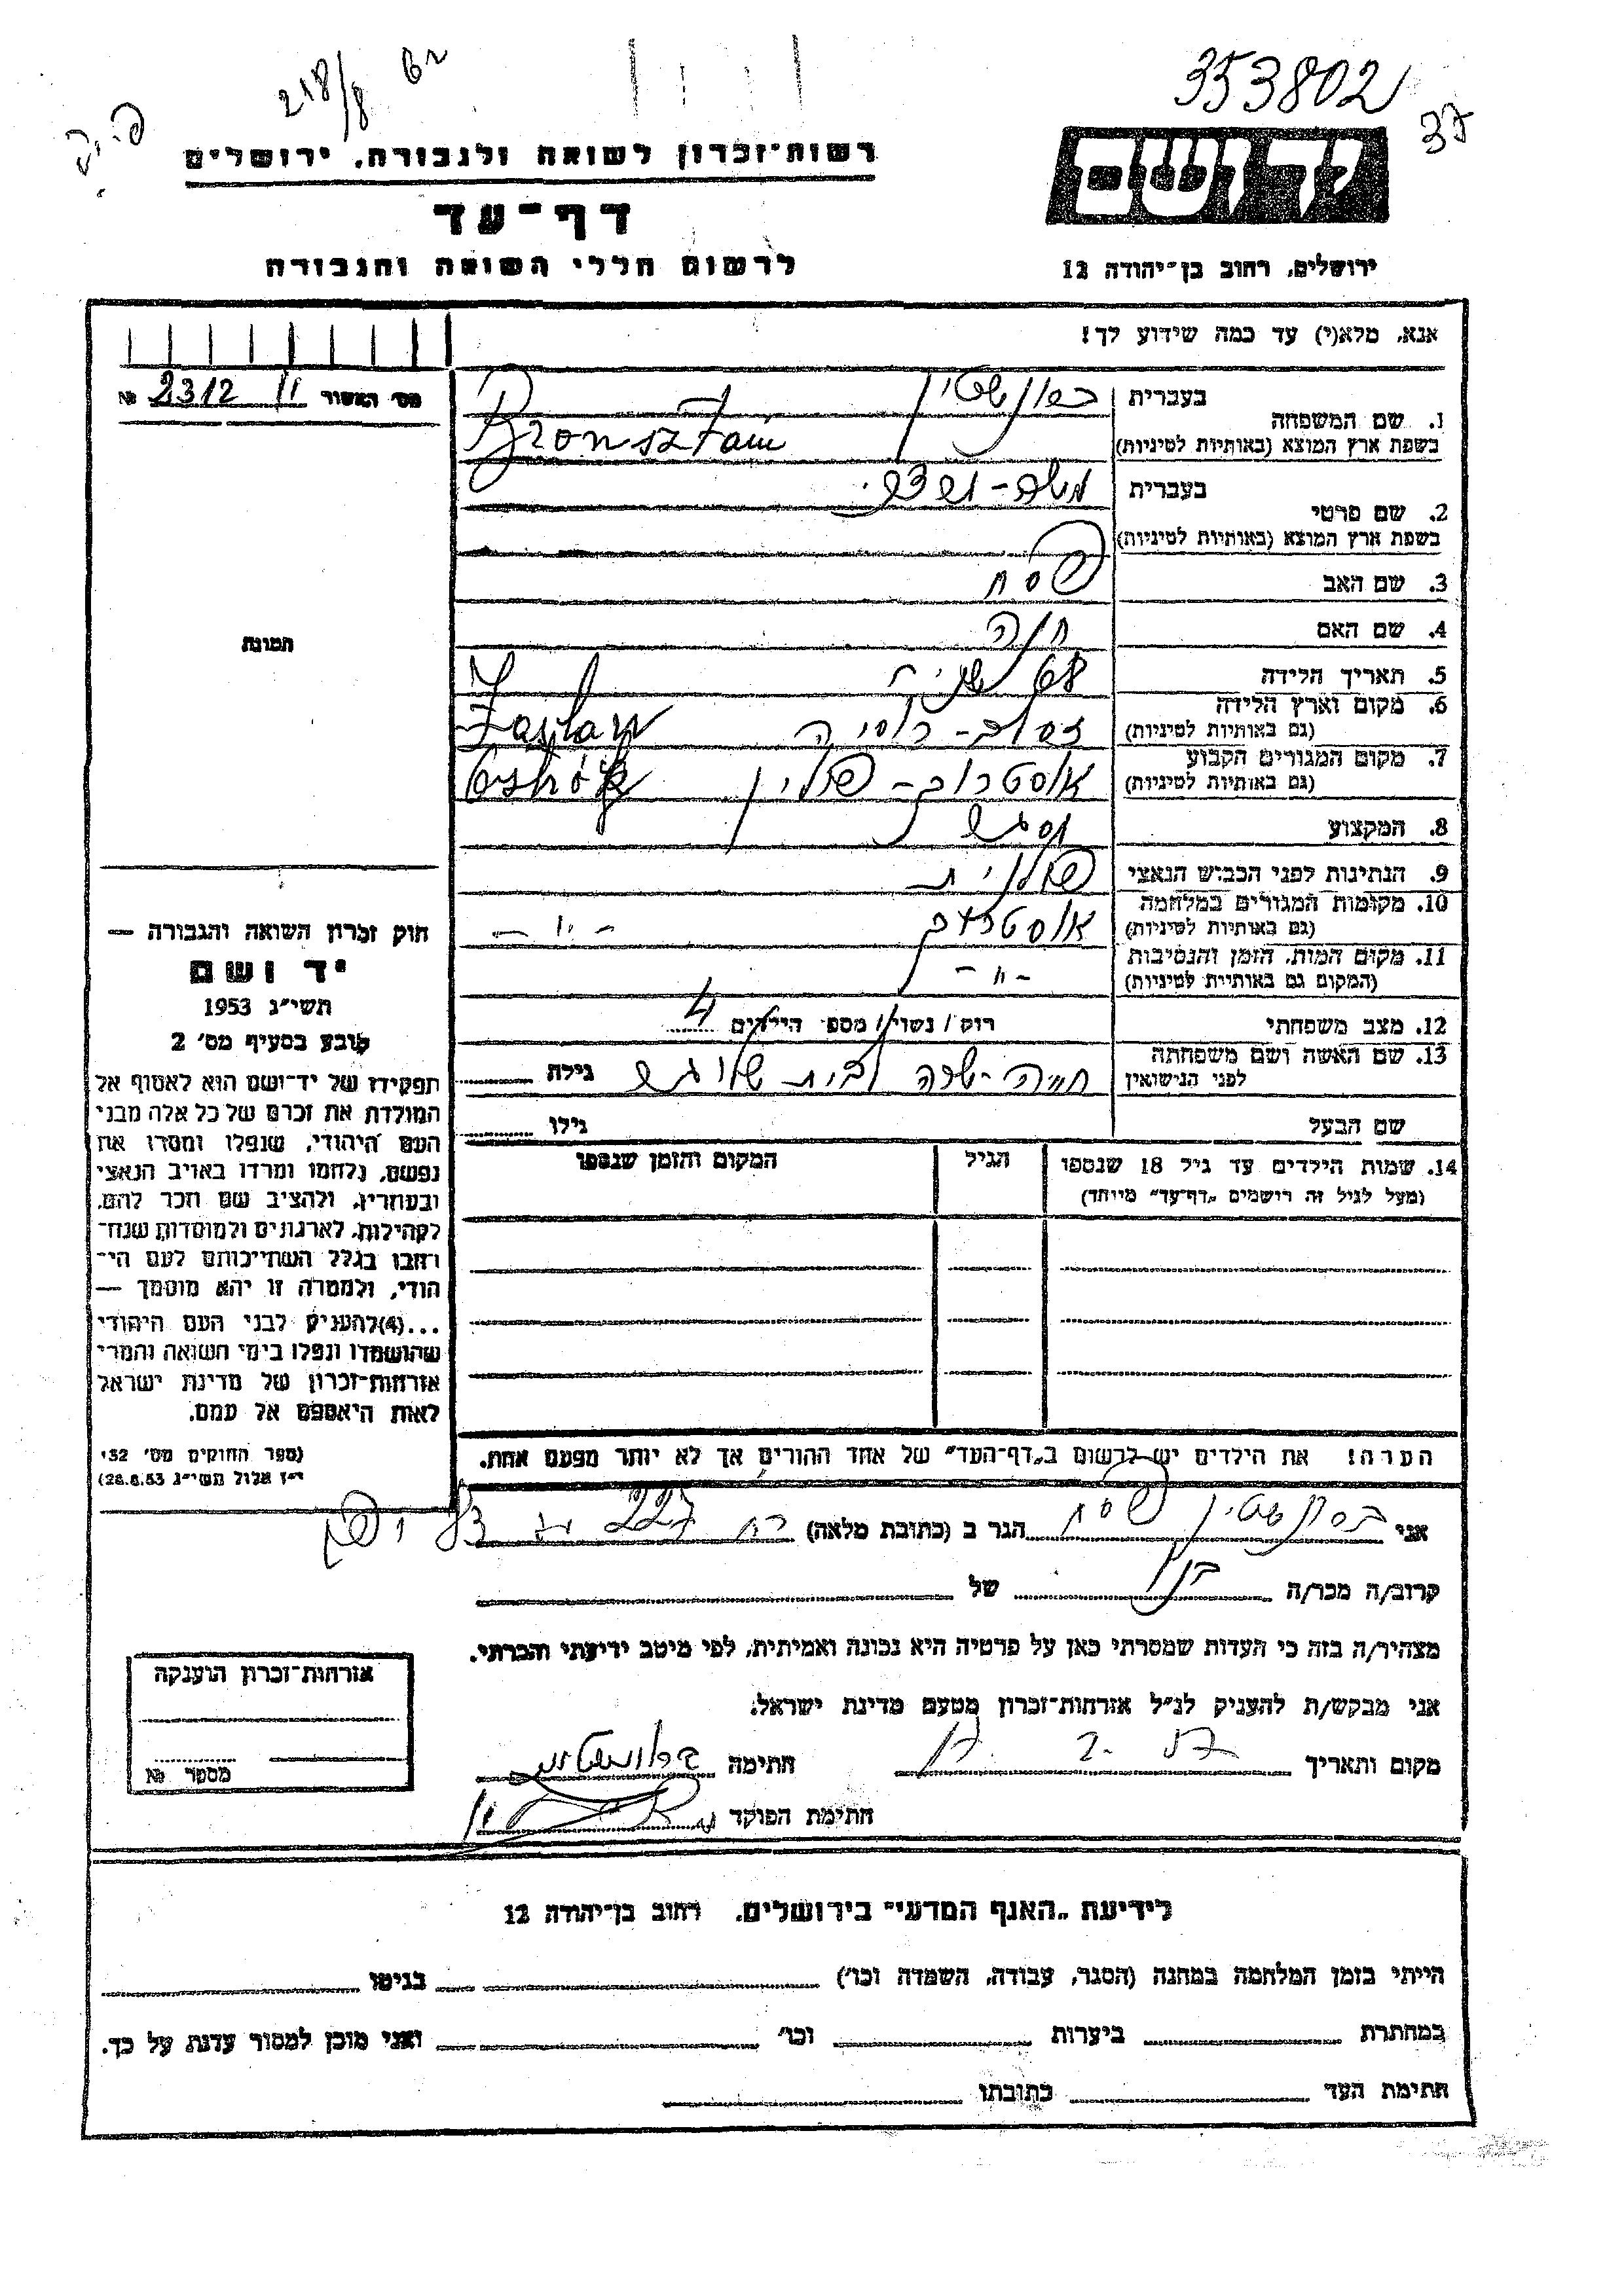 353802
37
218/8
רשות־זכרון לשואה ולגבורה, ירושלים
יד ושם
דף־עד
לרשום חללי השואה והגבורה
ירושלים, רחוב בן־יהודה 12
אנא, מלא(י) עד כמה שידוע לך!
מס' האסור 11 2312 №
1. שם המשפחה
בעברית ברונשטיין
בשפת ארץ המוצא (באותיות לטיניות) Bronsztain
2. שם פרטי
בעברית משה-
בשפת ארץ המוצא (באותיות לטיניות)
3. שם האב פסח
4. שם האם חנה
5. תאריך הלידה 68 שנים
6. מקום וארץ הלידה זסלב - רוסיה Zaslaw
(גם באותיות לטיניות)
7. מקום המגורים הקבוע אוסטרוג - פולין
(גם באותיות לטיניות)
8. המקצוע
9. הנתינות לפני הכבוש הנאצי פולנית
10. מקומות המגורים במלחמה אוסטרוג - " -
(גם באותיות לטיניות)
11. מקום המות, הזמן והנסיבות - " -
(המקום גם באותיות לטיניות)
12. מצב משפחתי רוק / נשוי / מספ' הילדים 4
13. שם האשה ושם משפחתה חיה - שרה לבית
לפני הנישואין גילה
שם הבעל גילו
14. שמות הילדים עד גיל 18 שנספו הגיל המקום והזמן שנספו
(מעל לגיל זה רושמים „דף־עד" מיוחד)
הערה! את הילדים יש לרשום ב„דף־העד" של אחד ההורים אך לא יותר מפעם אחת.
תמונה
חוק זכרון השואה והגבורה —
יד ושם
תשי"ג 1953
קובע בסעיף מס' 2
תפקידו של יד־ושם הוא לאסוף אל
המולדת את זכרם של כל אלה מבני
העם היהודי, שנפלו ומסרו את
נפשם, נלחמו ומרדו באויב הנאצי
ובעוזריו, ולהציב שם וזכר להם,
לקהילות, לארגונים ולמוסדות שנח־
רחבו בגלל השתייכותם לעם הי־
הודי, ולמטרה זו יהא מוסמך —
...(4)להעניק לבני העם היהודי
שהושמדו ונפלו בימי השואה והמרי
אזרחות־זכרון של מדינת ישראל
לאות היאספם אל עמם.
(ספר החוקים מס' 132,
י"ז אלול תשי"ג 28.8.53)
אני ברונשטיין פסח הגר ב (כתובת מלאה) רח 227
קרוב/ה מכר/ה בן של
מצהיר/ה בזה כי העדות שמסרתי כאן על פרטיה היא נכונה ואמיתית, לפי מיטב ידיעתי והכרתי.
אני מבקש/ת להעניק לנ"ל אזרחות־זכרון מטעם מדינת ישראל.
מקום ותאריך חתימה ברונשטיין
חתימת הפוקד
אזרחות־זכרון הוענקה
מספר №
לידיעת „האגף המדעי" בירושלים, רחוב בן־יהודה 12
הייתי בזמן המלחמה במחנה (הסגר, עבודה, השמדה וכו') בגיטו
במחתרת ביערות וכו' ואני מוכן למסור עדות על כך.
חתימת העד כתובתו